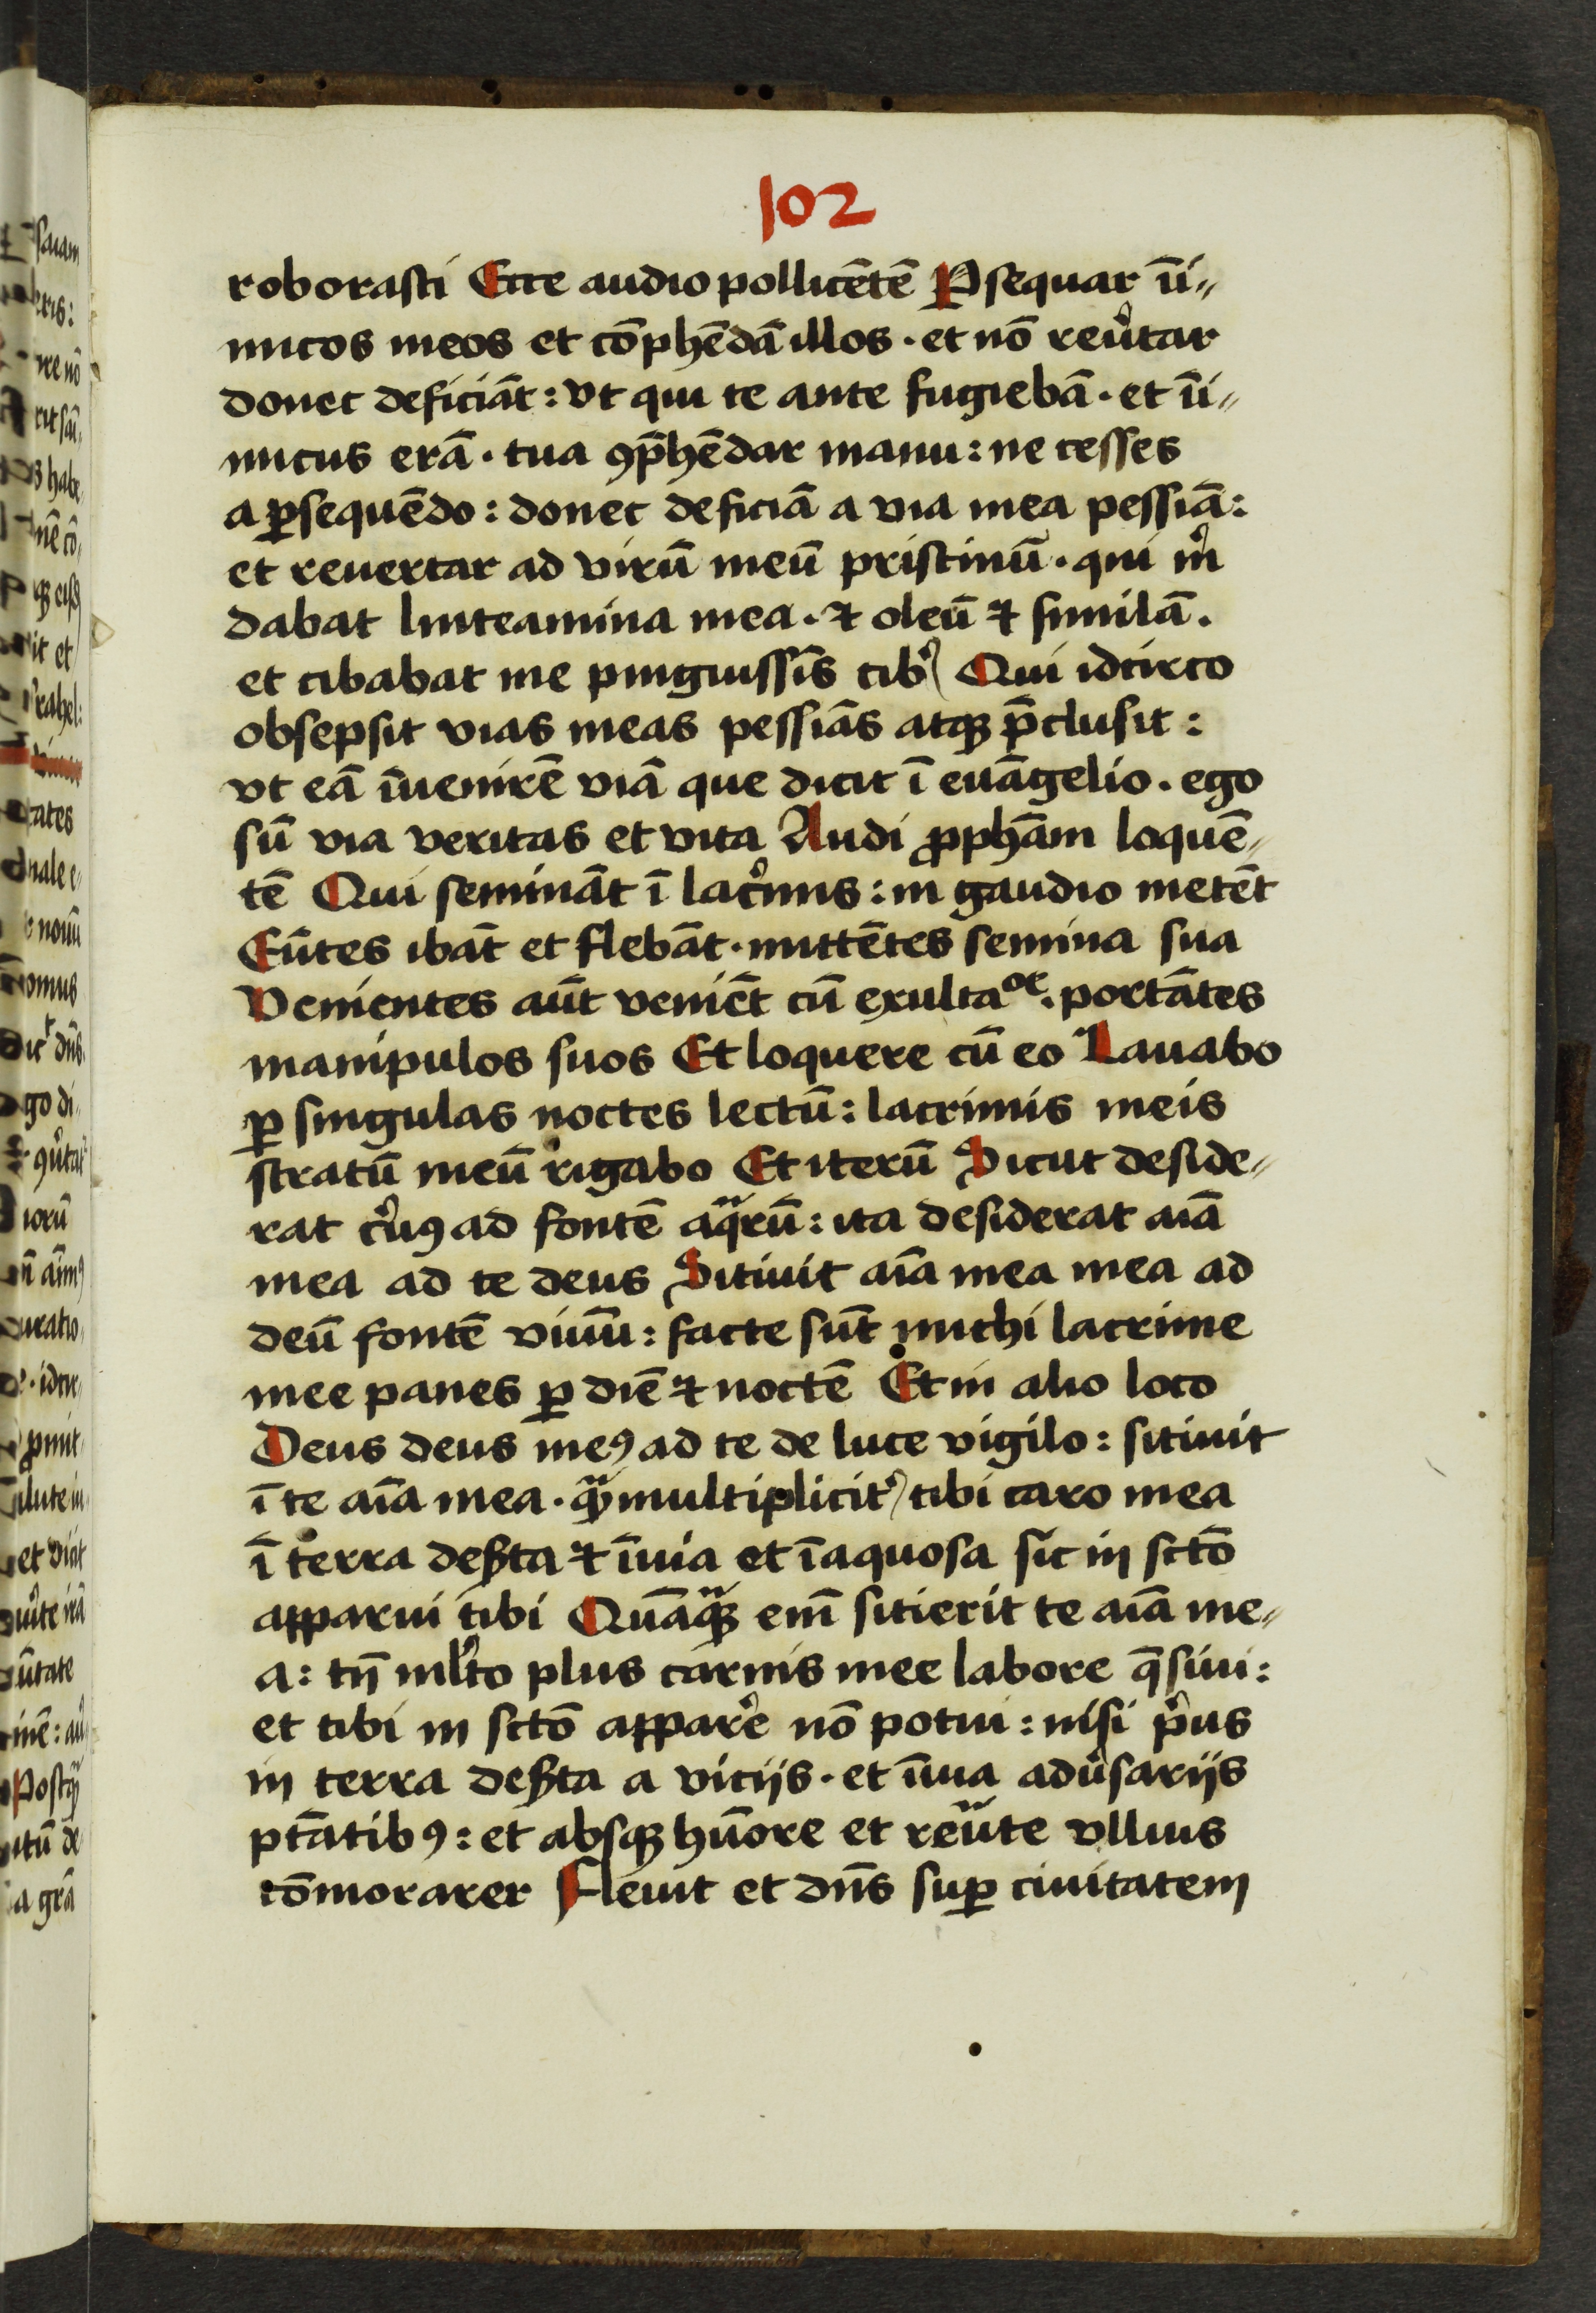 102
roborasti Ecce audio pollicētē Ꝑsequar īi〃
micos meos et cōphēdā illos · et nō reu̓tar
donec deficiāt : vt qui te ante fugiebā · et īi〃
micus erā · tua ꝯp̄hēdar manu : ne cesses
a ꝑsequēdo : donec deficiā a via mea pessīā :
et reuertar ad virū meū pristinū · qui m̓
dabat linteamina mea · ⁊ oleū ⁊ similā .
et cibabat me pinguissīs cib) Qui idcirco
obsepsit vias meas pessīas atqꝫ p̄clusit :
vt eā īuenirē viā que dicit ī euāgelio . ego
sū via veritas et vita Audi ꝓpħam loquē〃
tē Qui semināt ī lac̓mis : in gaudio metēt
Eūtes ibāt et flebāt · mittētes semina sua
Venientes aūt veniēt cū exultaᵒᵉ · portātes
manipulos suos Et loquere cū eo Lauabo
ꝑ singulas noctes lectū : lacrimis meis
stratū meū rigabo Et iterū Sicut deside〃
rat c̓uꝯ ad fontē aqͣrū : ita desiderat aīa
mea ad te deus Sitiuit aīa mea mea ad
deū fontē viuū : facte sūt michi lacrime
mee panes ꝑ diē ⁊ noctē Et in alio loco
Deus deus meꝯ ad te de luce vigilo : sitiuit
ī te aīa mea · qͣꝫ multiplicit̓ tibi caro mea
ī terra deẞta ⁊ īuia et īaquosa sic in sctō
apparui tibi Quāqͣꝫ em̄ sitierit te aīa me〃
a : tn̄ ml̓to plus carnis mee labore q̄siui :
et tibi in sctō appar̓e nō potui : nisi p̓us
in terra deẞta a vicijs · et īuia adu̓sarijs
ptātibꝯ : et absqꝫ hūore et reūte vllius
cōmorarer Fleuit et dn̄s suꝑ ciuitatem